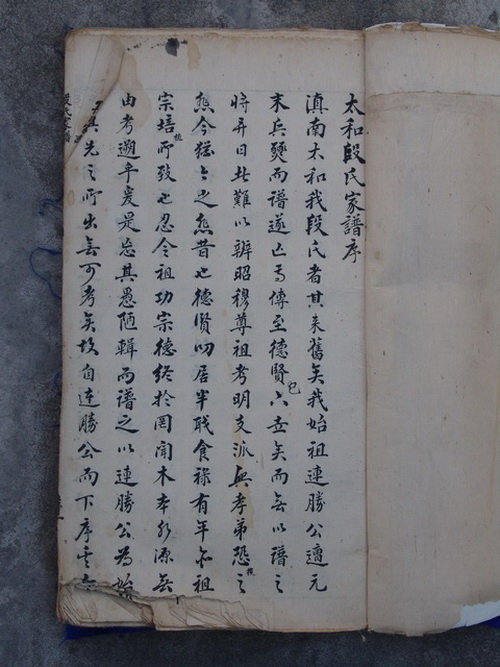 太和段氏家譜序
滇南太和我段氏者其来舊矣我始祖連勝公適元
末兵燹而譜遂亡焉傳至德賢已六世矣而無以譜之
將弄日此難以辨昭穆尊祖考明支派興孝弟恐後之
熊今猶今之熊昔也德賢叨居半職食祿有年亦祖
宗培所致也忍令祖功宗德終於罔聞木本水源無
由考遡乎爰是忘其愚陋輯而譜之以連勝公為始
其先之所出無可考矣故自連勝公而下序